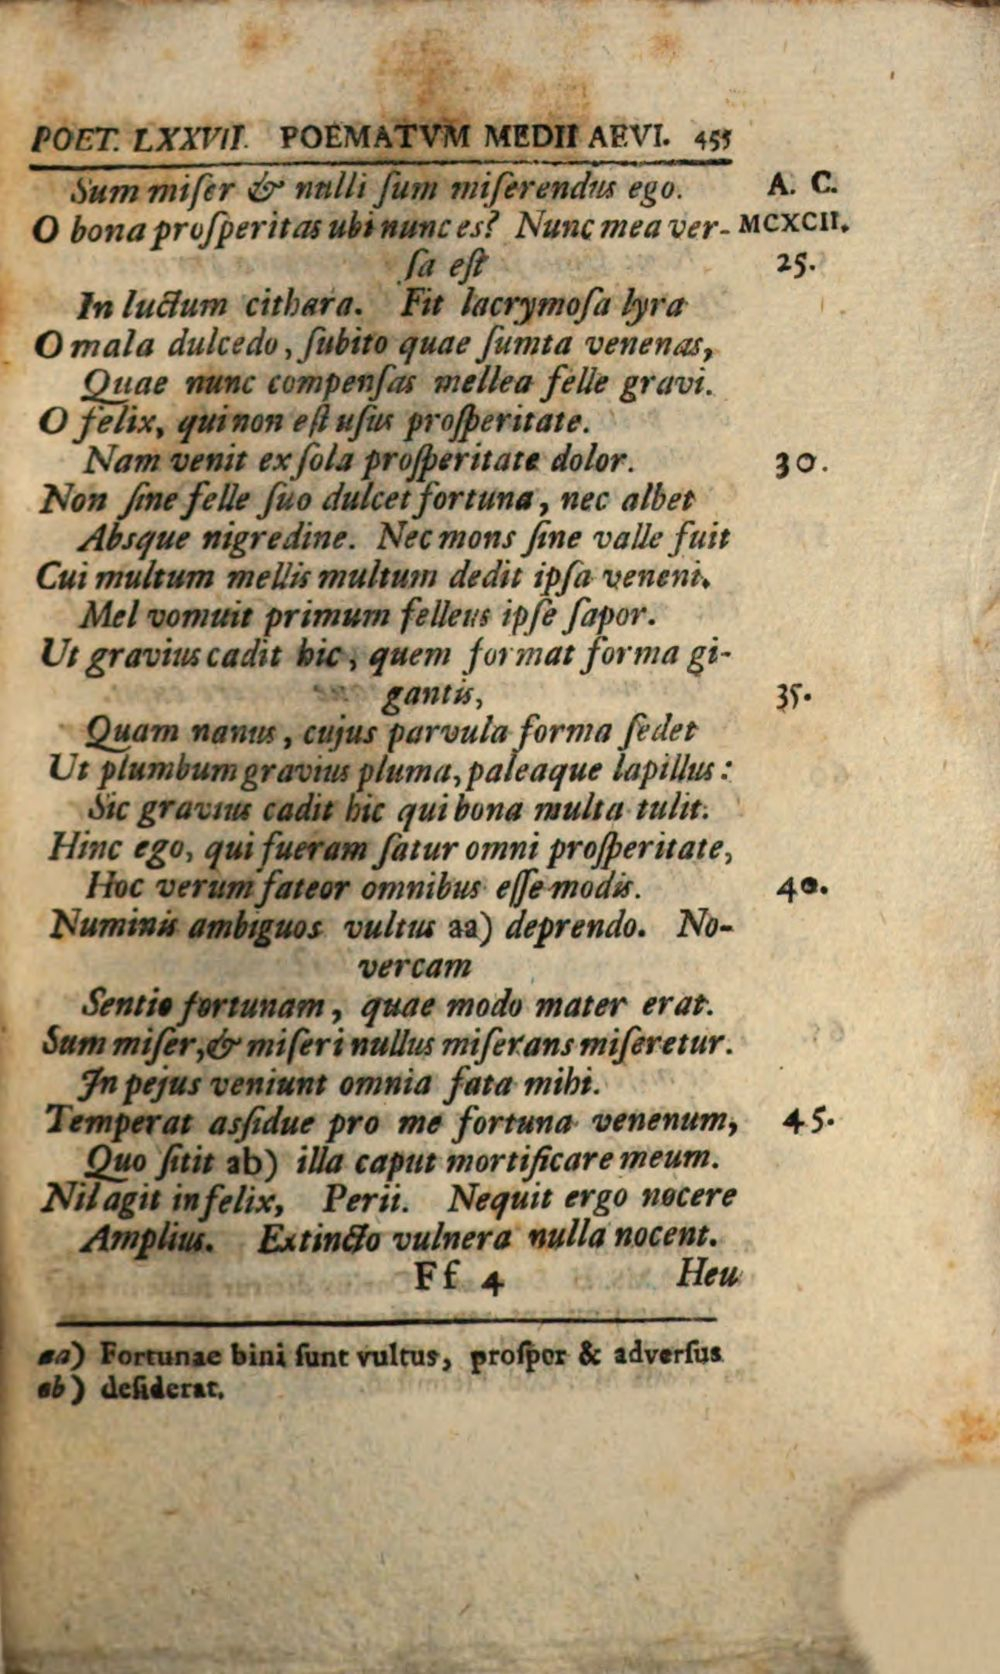 POET. LXXVII. POEMATVM MEDII AEVI. 455
Sum miſer & nulli ſum miſerendus ego. A. C.
O bona proſperitas ubi nunc es? Nunc mea ver- MCXCII.
ſa eſt 25.
In luctum cithara. Fit lacrymoſa lyra
O mala dulcedo, ſubito quae ſumta venenas,
Quae nunc compenſas mellea felle gravi.
O felix, qui non eſt uſus proſperitate.
Nam venit ex ſola proſperitate dolor. 30.
Non ſine felle ſuo dulcet fortuna, nec albet
Absque nigredine. Nec mons ſine valle fuit
Cui multum mellis multum dedit ipſa veneni.
Mel vomuit primum felleus ipſe ſapor.
Ut gravius cadit hic, quem format forma gi-
gantis, 35.
Quam nanus, cujus parvula forma ſedet
Ut plumbum gravius pluma, paleaque lapillus:
Sic gravius cadit hic qui bona multa tulit.
Hinc ego, qui fueram ſatur omni proſperitate,
Hoc verum fateor omnibus eſſe modis. 40.
Numinis ambiguos vultus aa) deprendo. No-
vercam
Sentio fortunam, quae modo mater erat.
Sum miſer, & miſeri nullus miſerans miſeretur.
In pejus veniunt omnia fata mihi.
Temperat asſidue pro me fortuna venenum, 45.
Quo ſitit ab) illa caput mortificare meum.
Nil agit infelix, Perii. Nequit ergo nocere
Amplius. Extincto vulnera nulla nocent.
Ff 4 Heu
aa) Fortunae bini ſunt vultus, proſper & adverſus
ab) deſiderat.